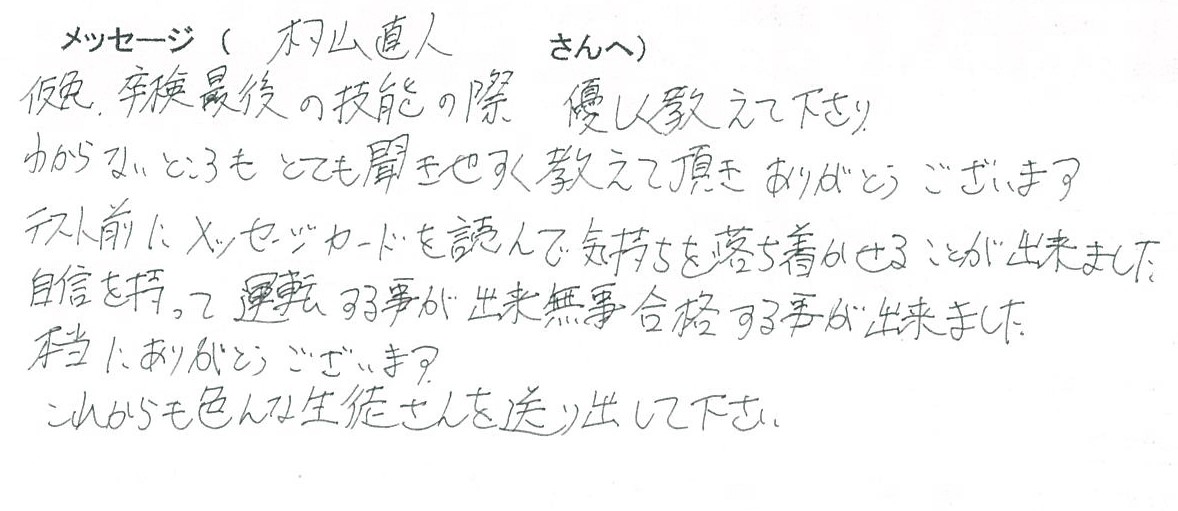 メッセージ( 村山直人 さんへ)
仮免.卒検最後の技能の際 優しく教えて下さり.
わからないところも とても聞きやすく教えて頂き ありがとうございます
テスト前に メッセージカードを読んで気持ちを落ち着かせることが出来ました.
自信を持って 運転する事が出来無事合格する事が出来ました.
本当にありがとうございます.
これからも色んな生徒さんを送り出して下さい.